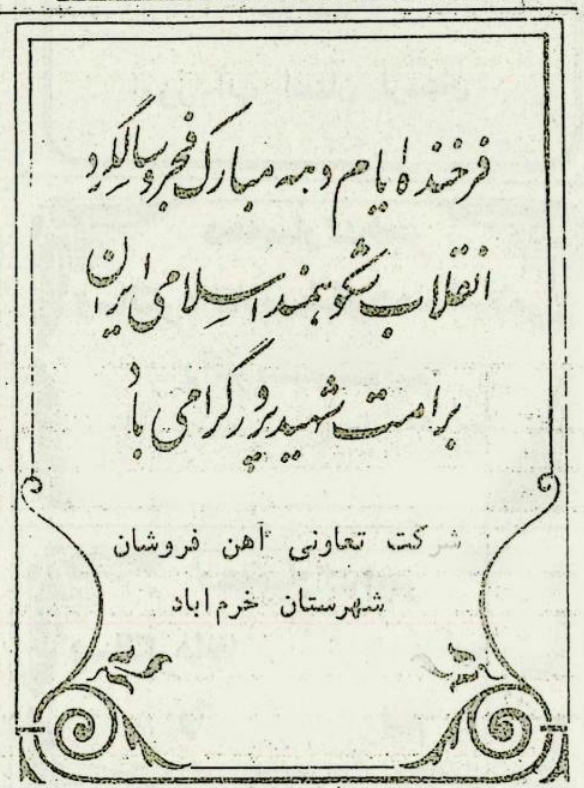 فرخنده ایام دهه مبارک فجر و سالگرد
انقلاب شکوهمند اسلامی ایران
بر امت شهید پرور گرامی باد
شرکت تعاونی آهن فروشان
شهرستان خرم اباد